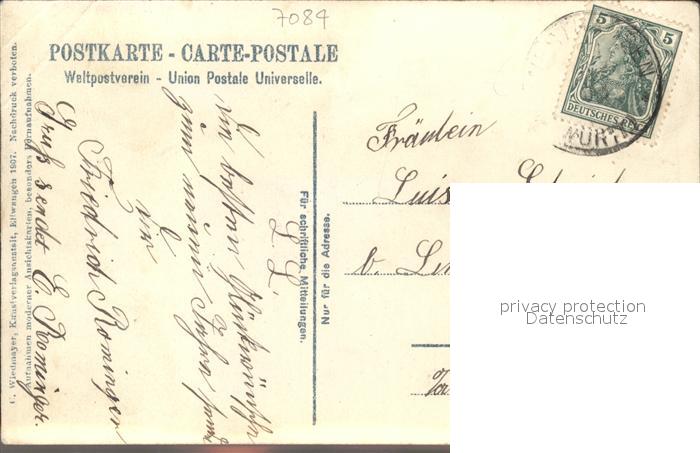 7084
POSTKARTE - CARTE-POSTALE
Weltpostverein - Union Postale Universelle.
5 5
DEUTSCHES REICH
WÜRT
C. Wiedmayer, Kunstverlagsanstalt, Ellwangen 1907. Nachdruck verboten.
Aufnahmen moderner Ansichtskarten, besonders Fernaufnahmen.
Gruß sendet E. Rominger.
Friedrich Rominger
Die besten Glückwünsche
zum neuen Jahre
L. L.
Für schriftliche Mitteilungen.
Nur für die Adresse.
Fräulein
Luis
b.
privacy protection
Datenschutz